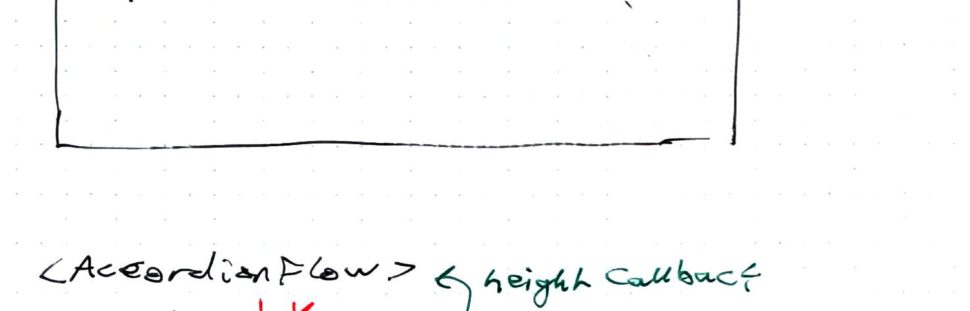 <AccordianFlow> ↩ height Callback